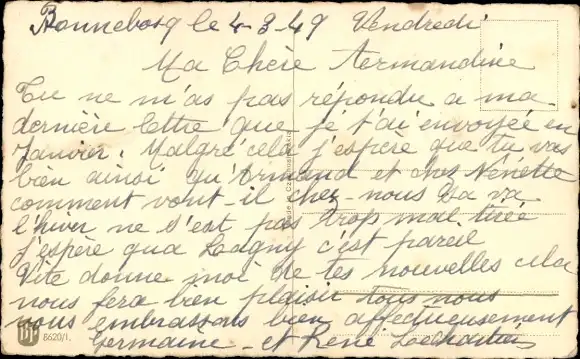 Bonnebosq le 4-3-49 Vendredi
Ma Chère Armandine
Tu ne m'as pas répondu a ma
dernière lettre que je t'ai envoyée en
Janvier. Malgré cela j'espère que tu vas
bien ainsi qu'Armand et chez Nénette
comment vont-il chez nous ça va
l'hiver ne s'est pas trop mal tiré
j'espère qua Lagny c'est pareil
Vite donne moi de tes nouvelles cela
nous fera bien plaisir tous nous
vous embrassons bien affectueusement
Germaine et René
8620/1.